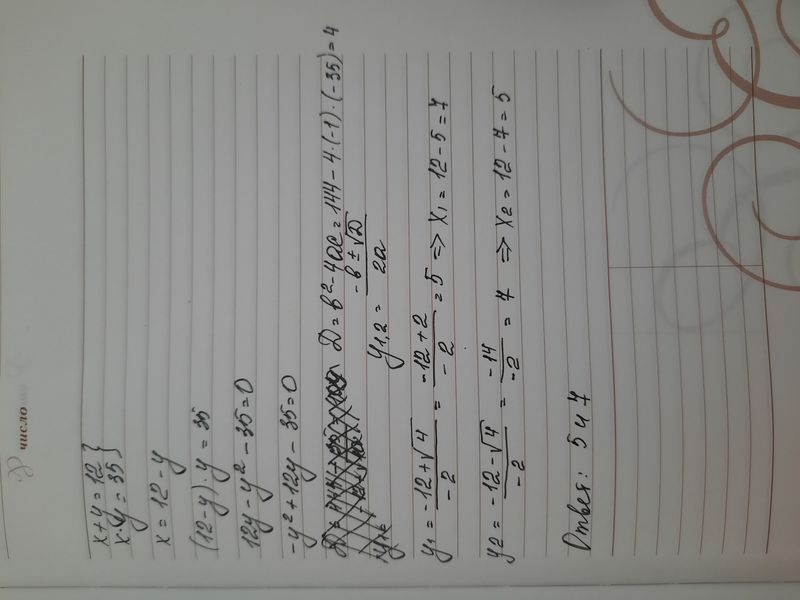 число
x + y = 12 }
x · y = 35
x = 12 - y
(12 - y) · y = 35
12y - y² - 35 = 0
-y² + 12y - 35 = 0
D = b² - 4ac = 144 - 4 · (-1) · (-35) = 4
y1,2 = -b ± √D / 2a
y1 = -12 + √4 / -2 = -12 + 2 / -2 = 5 => x1 = 12 - 5 = 7
y2 = -12 - √4 / -2 = -14 / -2 = 7 => x2 = 12 - 7 = 5
Ответ: 5 и 7